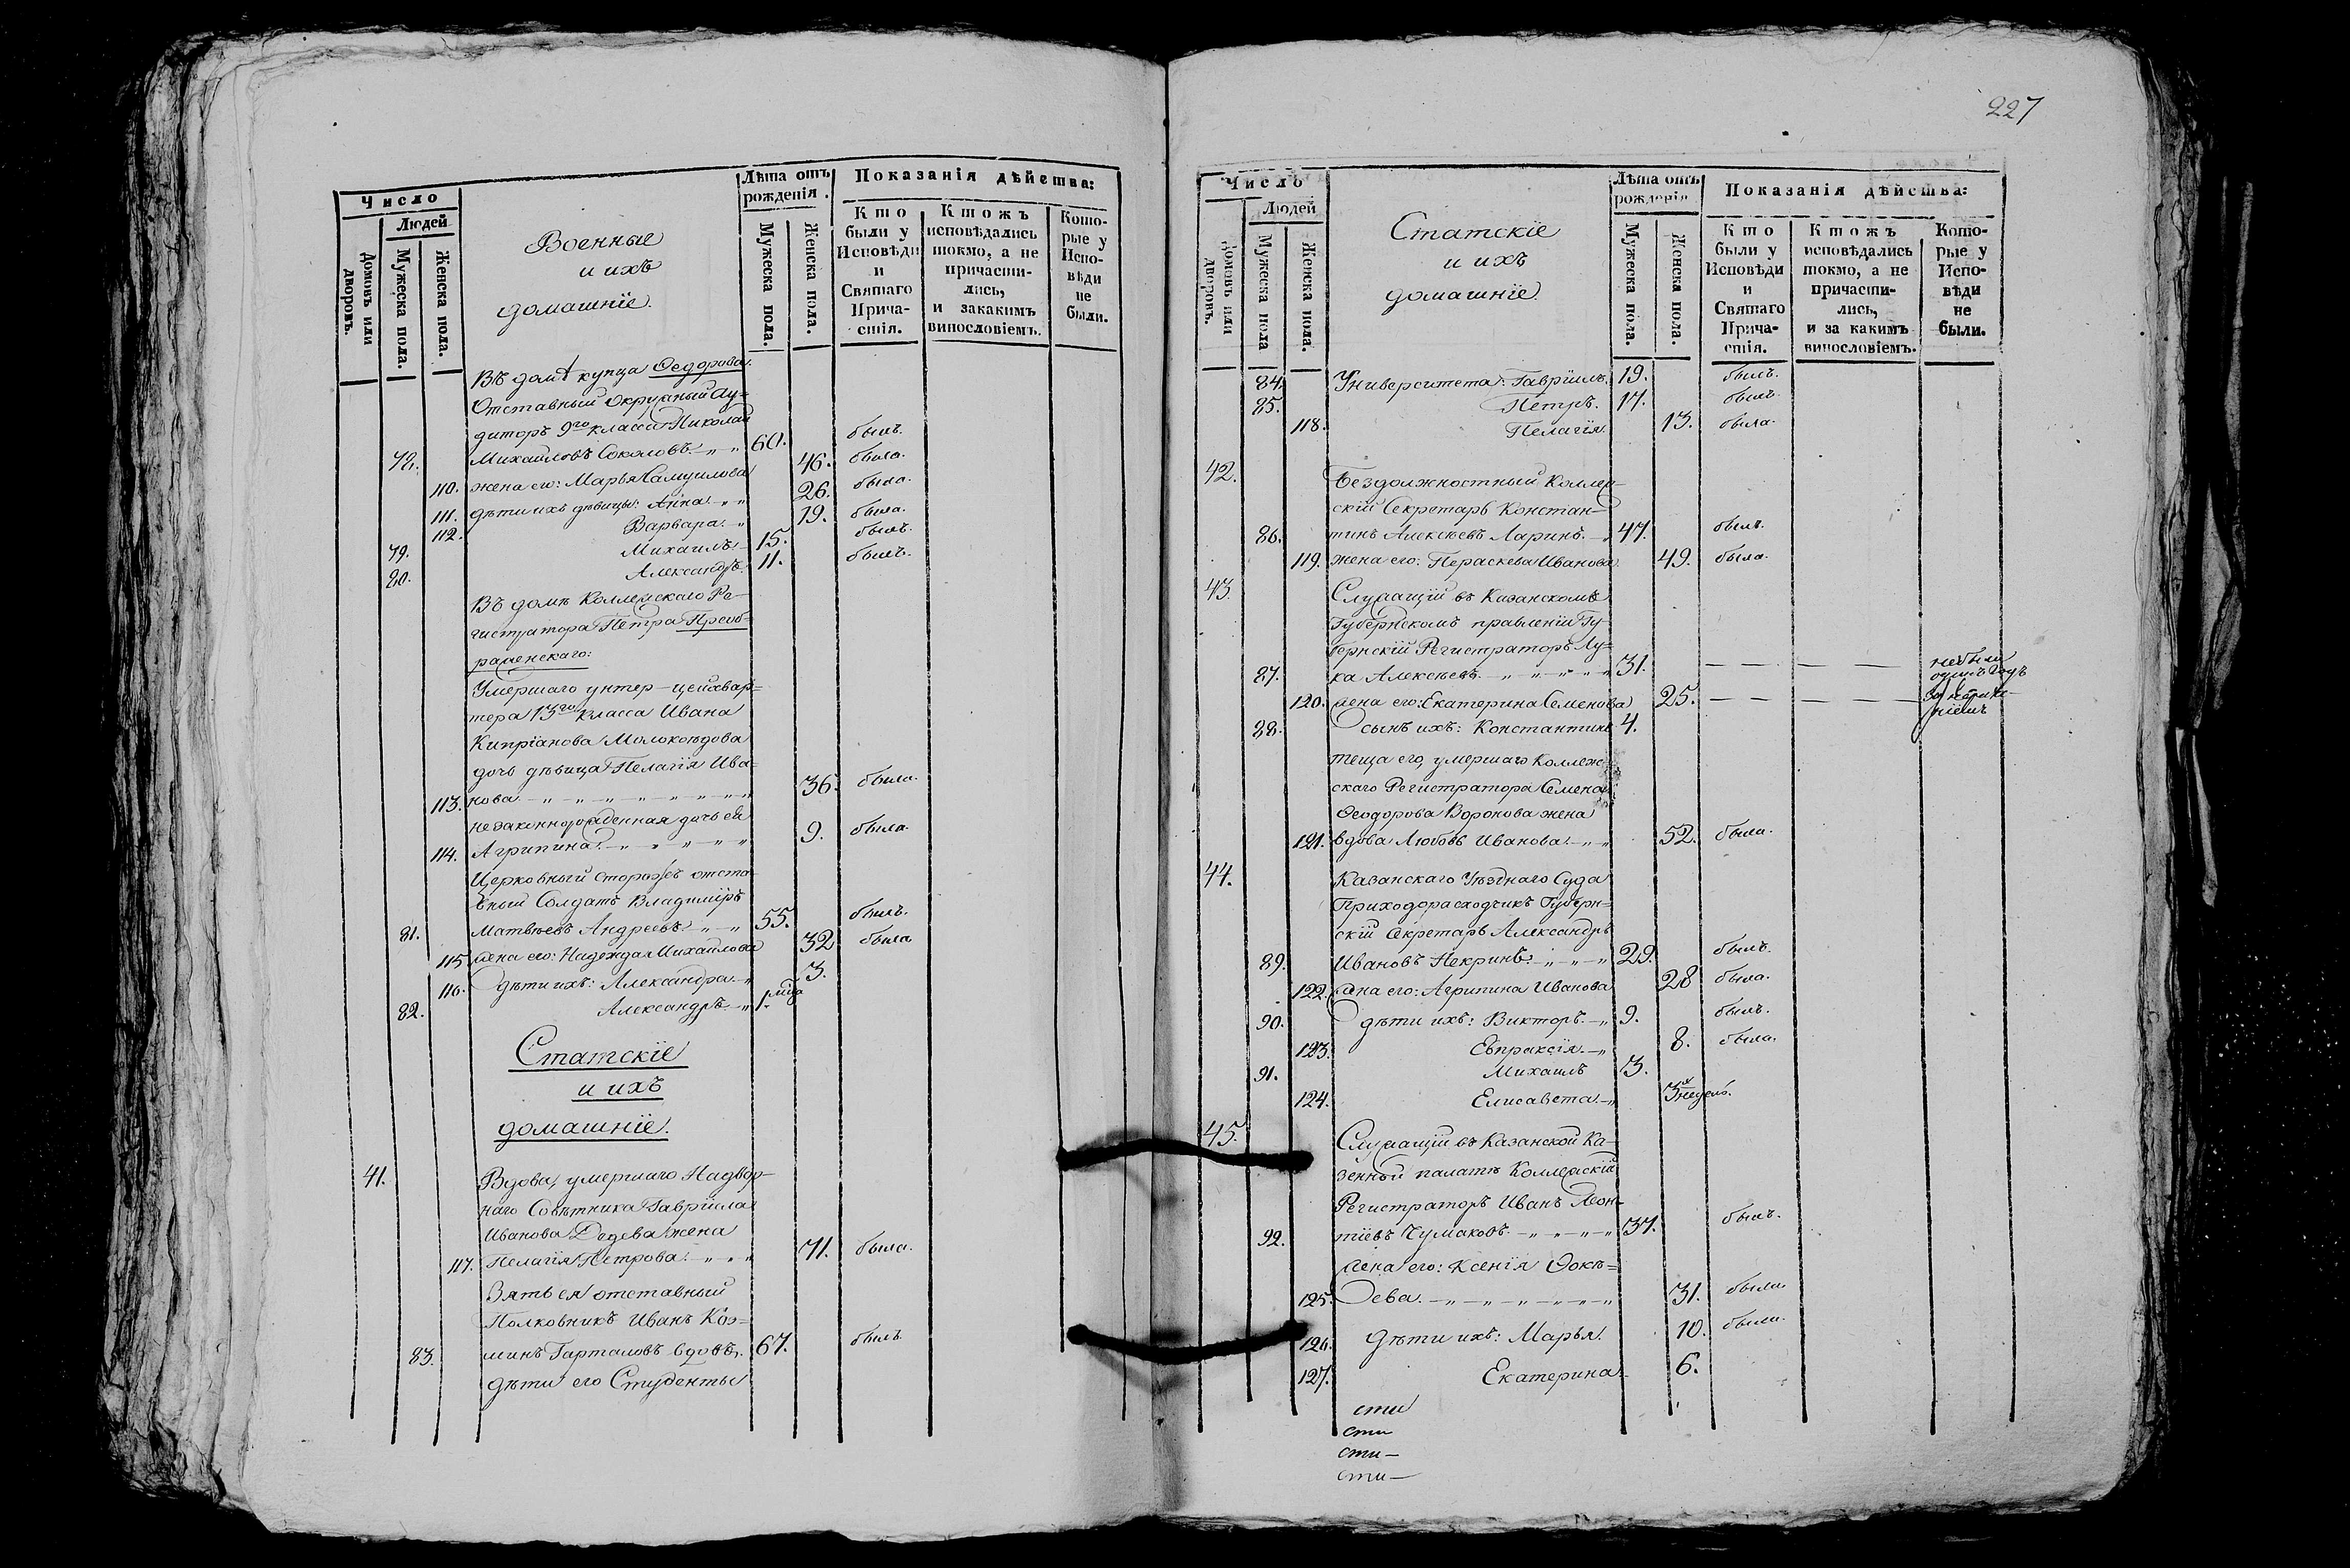 227
Число
Людей
Домовъ или дворовъ.
Мужеска пола.
Женска пола.
Военные
и ихъ
домашніе.
Лѣта отъ рожденія.
Мужеска пола.
Женска пола.
Показанія дѣйства:
Кто были у Исповѣди и Святаго Причастія.
Ктожъ исповѣдались токмо, а не причастились, и закакимъ винословіемъ.
Которые у Исповѣди не были.
Въ домѣ купца Ѳедорова.
Отставный окружный Ау-
диторъ 9го класса Николай
78. Михайловъ Соколовъ 60. былъ.
110. жена его: Марья Самуилова 46. была.
111. дѣти ихъ дѣвицы: Анна 26. была.
112. Варвара 19. была.
79. Михаилъ 15. былъ.
80. Александръ 11. былъ.
Въ домѣ Коллежскаго Ре-
гистратора Петра Преоб-
раженскаго:
Умершаго унтер-цейхвар-
тера 13го класса Ивана
Кипріанова Молокоѣдова
дочь дѣвица Пелагія Ива-
113. нова 36. была.
незаконнорожденная дочь ея
114. Агрипина 9. была.
Церковный Сторожъ отста-
вный Солдатъ Владиміръ
81. Матвѣевъ Андреевъ 55. былъ.
115. жена его: Надежда Михайлова 32 была
116. дѣти ихъ: Александра 3.
82. Александръ 1. мѣц
Статскіе
и ихъ
домашніе.
41. Вдова, умершаго Надвор-
наго Совѣтника Гавріила
Иванова Дедева жена
117. Пелагія Петрова 71. была.
Зять ея отставный
Полковникъ Иванъ Коз-
83. минъ Гарталовъ вдовъ. 67. былъ
дѣти его Студенты
Число
Людей
Домовъ или дворовъ.
Мужеска пола
Женска пола.
Статскіе
и ихъ
домашніе.
Лѣта отъ рожденія.
Мужеска пола.
Женска пола.
Показанія дѣйства:
Кто были у Исповѣди и Святаго Причастія.
Ктожъ исповѣдались токмо, а не причастились, и за какимъ винословіемъ.
Которые у Исповѣди не были.
84. Университета: Гавріилъ. 19. былъ.
85. Петръ. 17. былъ.
118. Пелагія. 13. была.
42. Бездолжностный Коллеж-
скій Секретарь Констан-
86. тинъ Алексѣевъ Ларинъ. 47. былъ.
119. жена его: Параскева Иванова 49. была.
43. Служащій въ Казанскомъ
Губернскомъ правленіи Гу-
бернскій Регистраторъ Лу-
87. ка Алексѣевъ 31. небыли одинъ годъ
120. жена его: Екатерина Семенова 25.
88. сынъ ихъ: Константинъ 4.
теща его, умершаго Коллеж-
скаго Регистратора Семена
Ѳеодорова Воронова жена
121. вдова Любовь Иванова 52. была.
44. Казанскаго Уѣзднаго Суда
Приходорасходчикъ Губерн-
скій Секретарь Александръ
89. Ивановъ Некринъ 29. былъ.
122. жена его: Агрипина Иванова 28 была.
90. дѣти ихъ: Викторъ 9. былъ.
123. Евпраксія 8. была.
91. Михаилъ 3.
124. Елисавета 3х недель.
45. Служащій въ Казанской Ка-
зенной палатѣ Коллежскій
Регистраторъ Иванъ Леон-
92. тіевъ Чумаковъ 37. былъ.
жена его: Ксенія Ѳокѣ-
125. ева 31. была.
126. Дѣти ихъ: Марья. 10. была.
127. Екатерина 6.
сти
сти
сти-
сти-